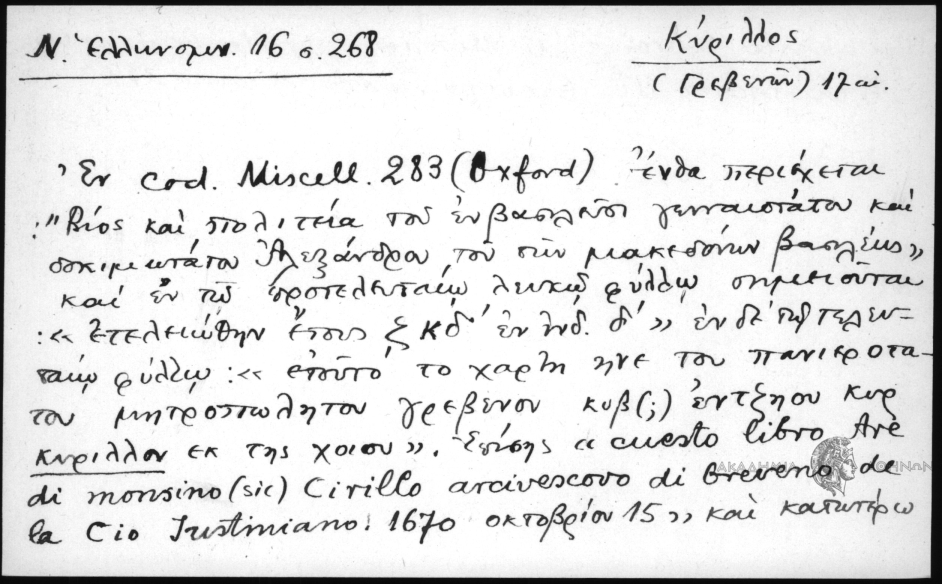 Ν. Ἑλληνομν. 16 σ. 268
Κύριλλος
(Γρεβενῶν) 17 αἰ.
Ἐν cod. Miscell. 283 (Oxford) ἔνθα περιέχεται
:"Βίος καὶ πολιτεία τοῦ ἐν βασιλεῦσι γενναιοτάτου καὶ
δοκιμωτάτου Ἀλεξάνδρου τοῦ τῶν μακεδόνων βασιλέως»
καὶ ἐν τῷ προτελευταίῳ λευκῷ φύλλῳ σημειοῦται
:«Ἐτελειώθην ἔτους ζκδ´ ἐν ἰνδ. δ´» ἐν δὲ τῷ τελευ-
ταίῳ φύλλῳ :« ἐτοῦτο το χαρτη ηνε του πανιεροτα-
του μητροπωλητου γρεβενου κυβ(;) ἐντζηου κυρ
κυριλλου εκ της χοιου». Ἐπίσης «cuesto libro Are
di monsino (sic) Cirillo arcivescovo di Greveno de
la Cio Iustiniano: 1670 οκτοβρίου 15» καὶ κατωτέρω
ΑΚΑΔΗΜΙΑ ΑΘΗΝΩΝ